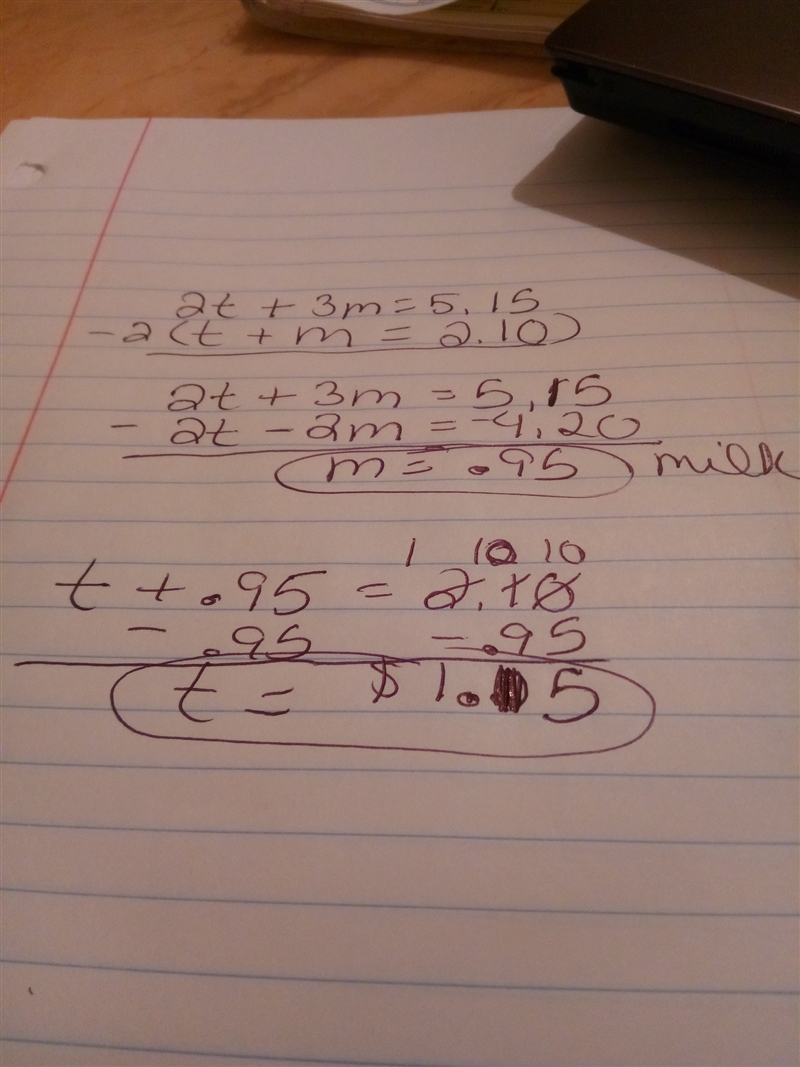 2t + 3m = 5.15
-2(t + m = 2.10)
2t + 3m = 5.15
- 2t - 2m = -4.20
m = .95 milk
1 10 10
t + .95 = 2.10
- .95 = .95
t = $1. 5